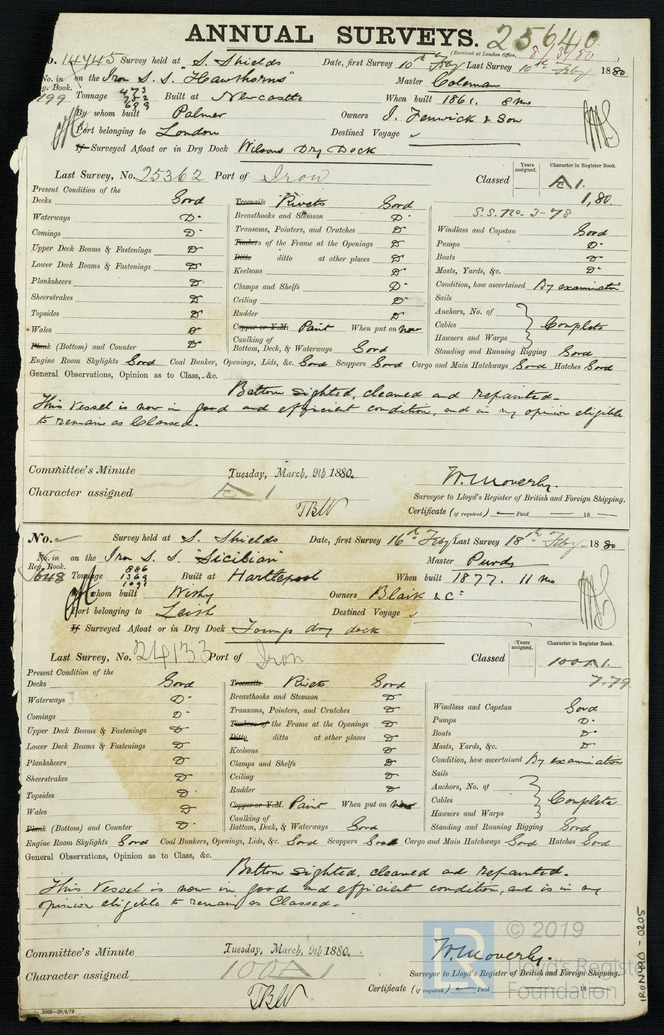 ANNUAL SURVEYS. 25640
(Received at London Office,
No. 14745 Survey held at S. Shields Date, first Survey 10th Feby Last Survey 10th Feby 1880
No. in on the Iron S. S. "Hawthorns" Master Coleman
Reg. Book.
299 Tonnage 473 Built at Newcastle When built 1861. 8 mo
By whom built Palmer Owners J. Fenwick & Son
Port belonging to London Destined Voyage
If Surveyed Afloat or in Dry Dock Wilsons Dry Dock
Last Survey, No. 25362 Port of Iron Classed
Years assigned. Character in Register Book.
A 1.
1,80
S.S. No. 3-78
Present Condition of the
Decks Good Treenails Rivets Good
Waterways Do. Breasthooks and Stemson Do.
Comings Do. Transoms, Pointers, and Crutches Do. Windlass and Capstan Good
Upper Deck Beams & Fastenings Do Timbers of the Frame at the Openings Do Pumps Do.
Lower Deck Beams & Fastenings Do Ditto ditto at other places Do Boats Do
Plansheers Do Keelsons Do Masts, Yards, &c. Do
Sheerstrakes Do Clamps and Shelfs Do Condition, how ascertained By examination
Topsides Do Ceiling Do Sails
Wales Do Rudder Do Anchors, No. of
Plank (Bottom) and Counter Do Copper or Y.M. Paint When put on now Cables Complete
Caulking of Bottom, Deck, & Waterways Good Hawsers and Warps
Standing and Running Rigging Good
Engine Room Skylights Good Coal Bunker, Openings, Lids, &c. Good Scuppers Good Cargo and Main Hatchways Good Hatches Good
General Observations, Opinion as to Class, &c.
Bottom sighted, cleaned and repainted.
This Vessel is now in good and efficient condition, and in my opinion eligible
to remain as Classed.
Committee's Minute Tuesday, March, 9th 1880.
Character assigned A 1
W. Moverly.
Surveyor to Lloyd's Register of British and Foreign Shipping.
TBW
Certificate (if required) Paid 18
No. Survey held at S. Shields Date, first Survey 16th Feby Last Survey 18th Feby 1880
No. in on the Iron S. S. "Sicilian" Master Purdy
Reg. Book. 886
648 Tonnage 1369 Built at Hartlepool When built 1877. 11 mo
By whom built Withy Owners Blair & Co
Port belonging to Leith Destined Voyage
If Surveyed Afloat or in Dry Dock Youngs dry dock
Last Survey, No. 24133 Port of Iron Classed
Years assigned. Character in Register Book.
100 A 1.
7.79
Present Condition of the
Decks Good Treenails Rivets Good
Waterways Do. Breasthooks and Stemson Do
Comings Do. Transoms, Pointers, and Crutches Do. Windlass and Capstan Good
Upper Deck Beams & Fastenings Do Timbers of the Frame at the Openings Do Pumps Do.
Lower Deck Beams & Fastenings Do Ditto ditto at other places Do Boats Do
Planksheers Do Keelsons Do Masts, Yards, &c. Do
Sheerstrakes Do Clamps and Shelfs Do Condition, how ascertained By examination
Topsides Do. Ceiling Do Sails
Wales Do Rudder Do Anchors, No. of
Plank (Bottom) and Counter Do Copper or Y.M. Paint When put on now Cables Complete
Caulking of Bottom, Deck, & Waterways Good Hawsers and Warps
Standing and Running Rigging Good
Engine Room Skylights Good Coal Bunkers, Openings, Lids, &c. Good Scuppers Good Cargo and Main Hatchways Good Hatches Good
General Observations, Opinion as to Class, &c.
Bottom sighted, cleaned and repainted.
This Vessel is now in good and efficient condition, and is in my
opinion eligible to remain as Classed.
© 2019
Lloyd's Register
Foundation
IRON480-0205
Committee's Minute Tuesday, March, 9th 1880.
Character assigned 100 A 1
W. Moverly.
Surveyor to Lloyd's Register of British and Foreign Shipping.
TBW
Certificate (if required) Paid 18
3000—29/8/79